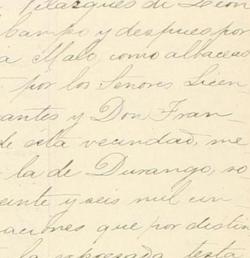 Velazquez de Leon
Campo y despues por
a Malo, como albaceas
por los Señores Licen
antes y Don Fran
de esta vecindad, me
la de Durango, so
veinte y seis mil un
aciones que por distin
la expresada testa